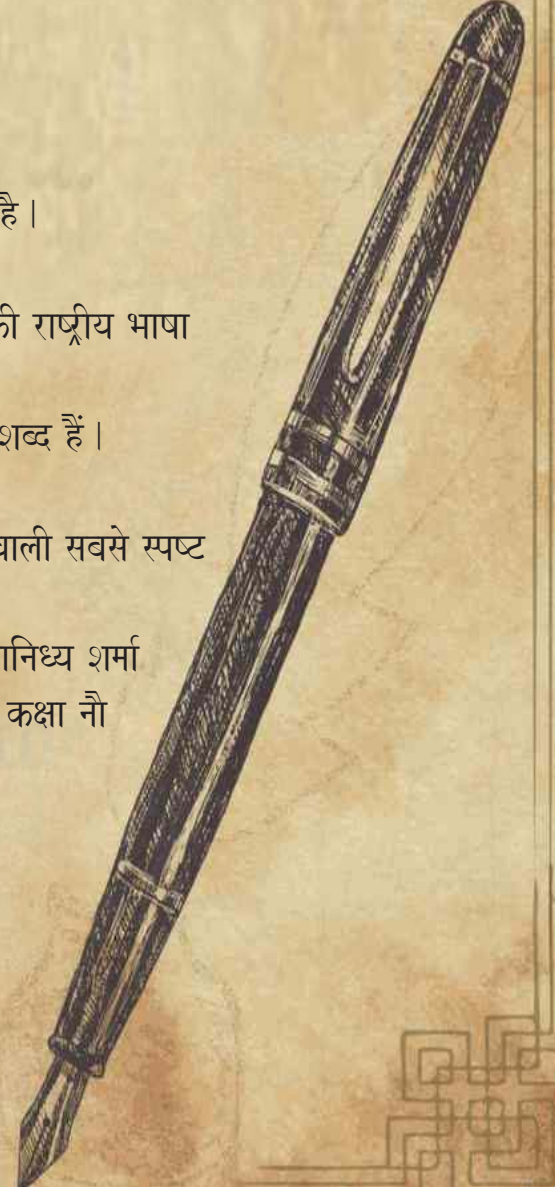 है।
की राष्ट्रीय भाषा
शब्द हैं।
वाली सबसे स्पष्ट
शर्मा
कक्षा नौ